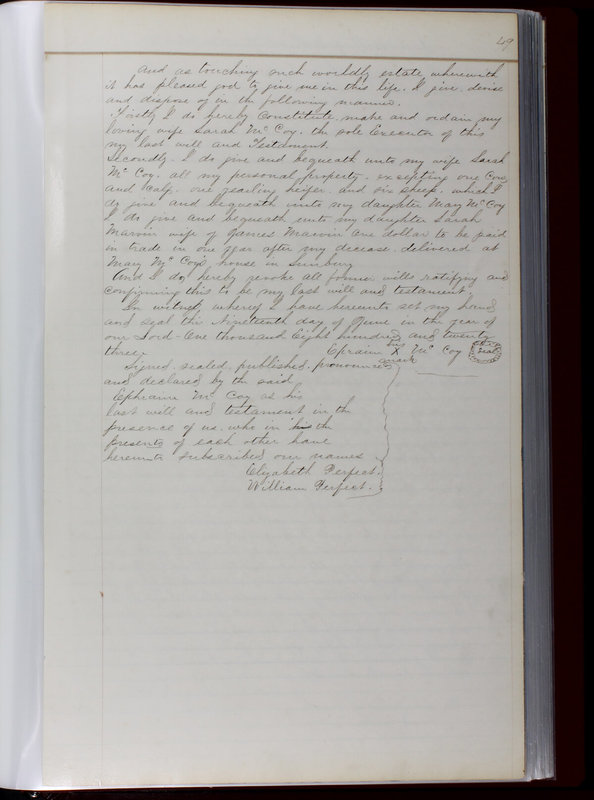 49
And as touching such worldly estate wherewith
it has pleased god to give me in this life. I give, devise
and dispose of in the following manner.
Firstly I do hereby constitute, make and ordain my
loving wife Sarah Mc Coy. the sole Executor of this
my last will and Testament.
Secondly. I do give and bequeath unto my wife Sarah
Mc Coy. all my personal property. excepting one Cow
and Calf. one yearling heifer. and six sheep. which I
do give and bequeath unto my daughter Mary Mc Coy
I do give and bequeath unto my daughter Sarah
Marvin wife of James Marvin one dollar to be paid
in trade in one year after my decease. delivered at
Mary Mc Coy's house in Sunbury
And I do hereby revoke all former wills ratifying and
confirming this to be my last will and testament.
In witness whereof I have hereunto set my hand
and seal this Nineteenth day of June in the year of
our Lord One thousand Eight hundred and twenty
three.
his
Epraim X Mc Coy
mark
seal
Signed, sealed, published, pronounced
and declared by the said
Ephraim Mc Coy as his
last will and testament in the
presence of us. who in the
presents of each other have
hereunto subscribed our names
Elyabeth Perfect.
William Perfect.